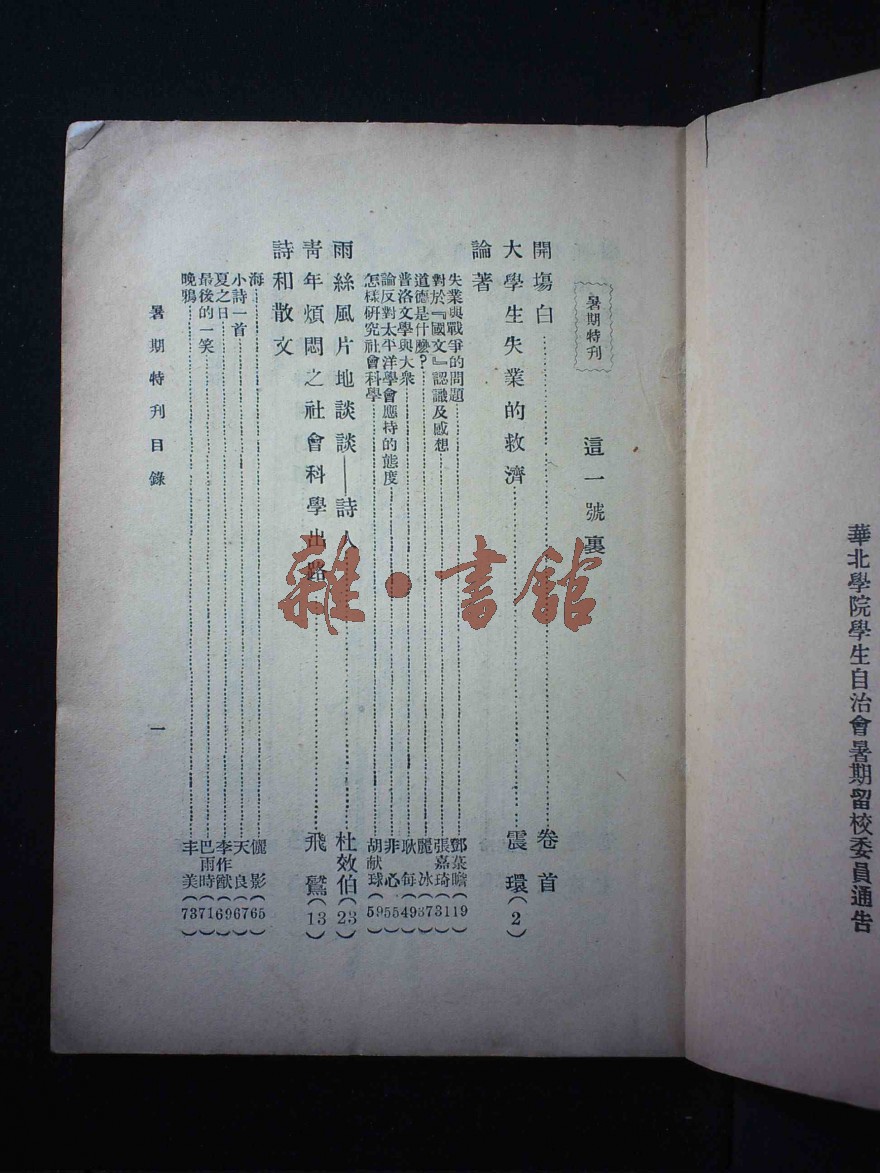 華北學院學生自治會暑期留校委員通告
暑期特刊
這一號裏
開塲白……卷首
大學生失業的救濟……震環(2)
論著
失業與戰爭的問題……鄧葉瞻(19)
對於『國文』認識及感想……張嘉琦(31)
道德是什麽?……麗冰(37)
普洛文學與大衆……耿每(49)
論反對太平洋學會應持的態度……非心(55)
怎樣研究社會科學……胡献球(59)
雨絲風片地談談——詩人……杜效伯(23)
青年煩悶之社會科學出路……飛鷺(13)
詩和散文
海……儷影(65)
小詩一首……天良(67)
夏之日……李作猷(69)
最後的一笑……巴雨時(71)
晚鴉……丰美(73)
暑期特刊目錄
一
雜·書館